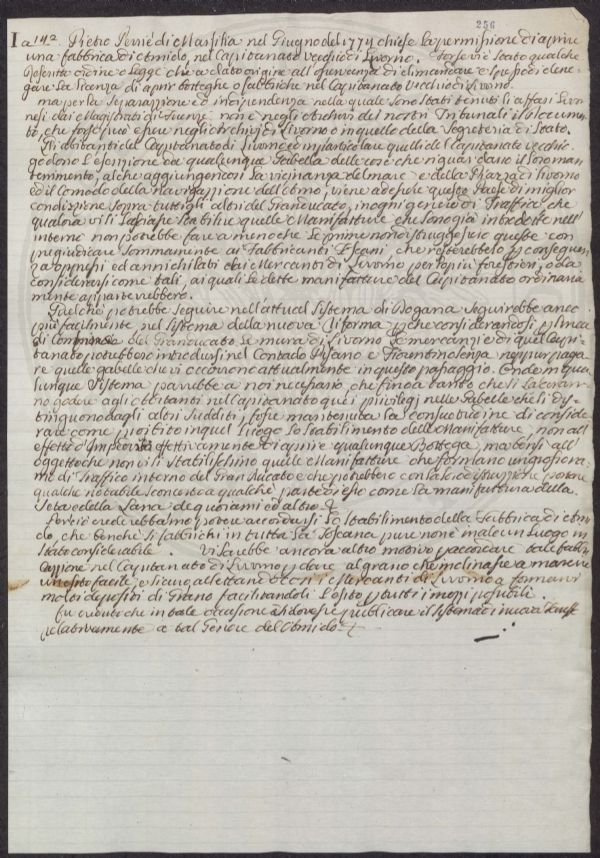 256
I a 14.a Pietro Perriè di Marsilia nel Giugno del 1774 chiese la permissione di aprire
una fabbrica di Amido, nel Capitanato vecchio di Livorno. Forse vi è stato qualche
Rescritto ordine o Legge che à dato origine all'usuenza di dimandare e spesso di dene-
gare la licenza di aprir botteghe o fabbriche nel Capitanato Vecchio di Livorno.
ma per la separazione ed indipendenza nella quale sono stati tenuti li affari Livor
nesi dai Magistrati di Firenze non è negli Archivi dei nostri Tribunali il documen
to, che forse può essere negli Archivi di Livorno o in quello della Segreteria di Stato.
Gli abitanti del Capitanato di Livorno ed in particolare quelli del Capitanato vecchio
godono l'esenzione da qualunque Gabella delle cose che riguardano il loro man
tenimento, al che aggiungendosi la vicinanza del mare e della Piazza di Livorno
ed il Comodo della navigazione dell'Arno, viene ad esser questo Paese di miglior
condizione sopra tutti gli altri del Granducato, in ogni genere di Traffico che
qualora vi si lasciasse stabilire quelle Manifatture che sono già introdotte nell'
interno non potrebbe fare a meno che le prime non distruggessero queste con
pregiudicare sommamente ai Fabbricanti Toscani che resterebbero p conseguen
za oppressi ed annichilati dai Mercanti di Livorno per lo più forestieri, o da
considerarsi come tali, ai quali le dette manifatture del Capitanato ordinaria
mente apparterrebbero.
Quel che potrebbe seguire nell'attual sistema di Dogana seguirebbe anco
più facilmente nel sistema della nuova Riforma p che considerandosi p linea
di del Granducato le mura di Livorno le mercanzie di quel Capi-
tanato potrebbero introdursi nel Contado Pisano e Fiorentino senza neppur paga
re quelle gabelle che vi occorrono attualmente in questo passaggio. Onde in qua
lunque sistema parrebbe a noi necessario che fino a tanto che si lasceran-
no godere agli abitanti nel Capitanato quei privilegj nelle Gabelle che li dis-
tinguono dagli altri sudditi, fosse mantenuta la consuetudine di conside
rare come proibito in quel luogo lo stabilimento delle Manifatture, non all'
effetto d'impedir effettivamente di aprire qualunque Bottega, ma bensì all'
oggetto che non vi si stabilischino quelle Manifatture che formano un grosso ra
mo di Traffico interno del Gran Ducato e che potrebbero con la loro distruzzione portare
qualche notabile sconcerto a qualche parte di esso come la manifattura della
Seta della Lana de quoiami ed altro
Perciò crederebbamo potere accordarsi lo stabilimento della Fabbrica di Ami
do, che benché si fabbrichi in tutta la Toscana pure non è male un luogo in
stato considerabile. Vi sarebbe ancora altro motivo p accordare tale fabbri
cazione nel Capitanato di Livorno p dare al grano che molinasse a marcire
un esito facile e sicuro allettando così i Mercanti di Livorno a formarvi
molti depositi di Grano facilitandoli l'esito p tutti i modi possibili.
In tale occasione si dovesse pubblicare il sistema di nuova Tariffa
relativamente a tal Genere dell'Amido